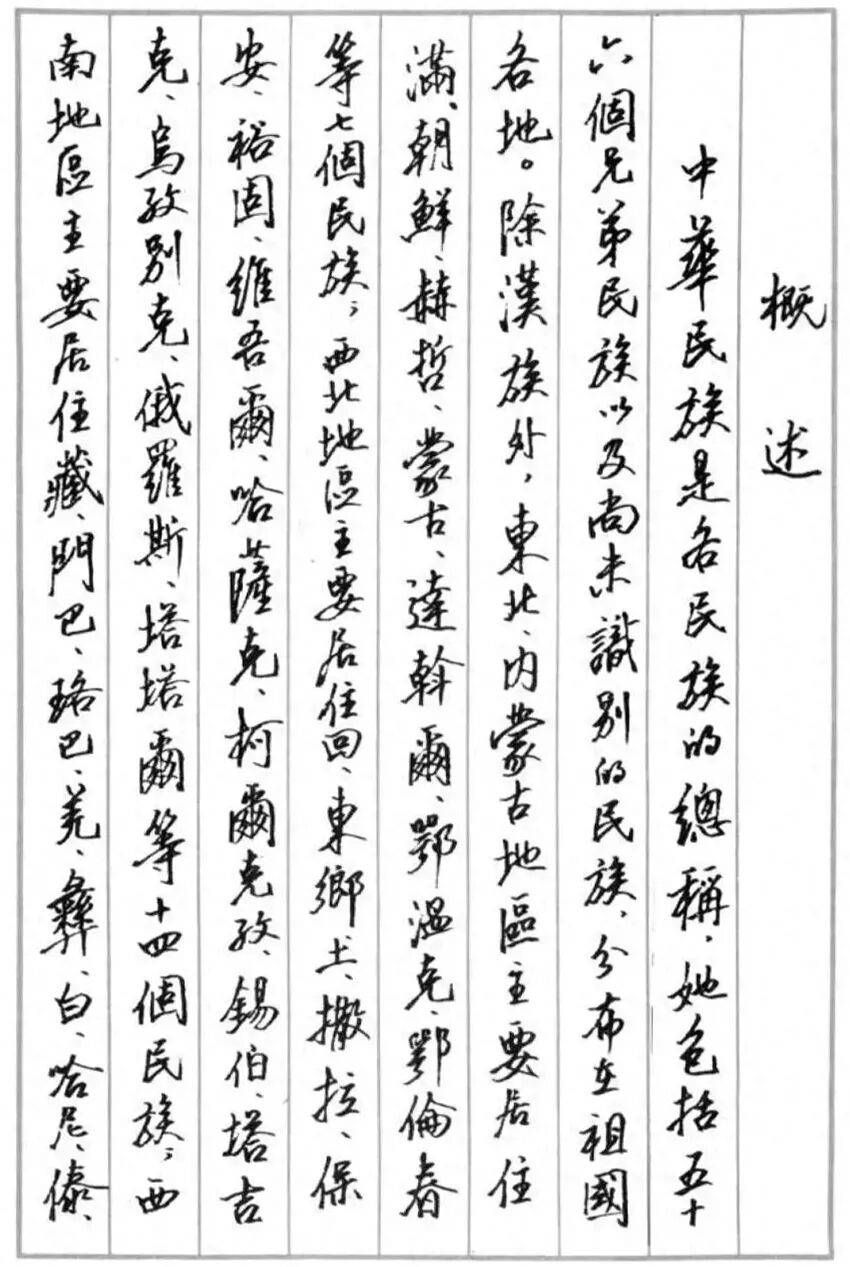 概述
中華民族是各民族的總稱，她包括五十
六個兄弟民族以及尚未識別的民族，分布在祖國
各地。除漢族外，東北、内蒙古地區主要居住
滿、朝鮮、赫哲、蒙古、達斡爾、鄂溫克、鄂倫春
等七個民族；西北地區主要居住回、東鄉、土、撒拉、保
安、裕固、維吾爾、哈薩克、柯爾克孜、錫伯、塔吉
克、烏孜別克、俄羅斯、塔塔爾等十四個民族；西
南地區主要居住藏、門巴、珞巴、羌、彝、白、哈尼、傣、